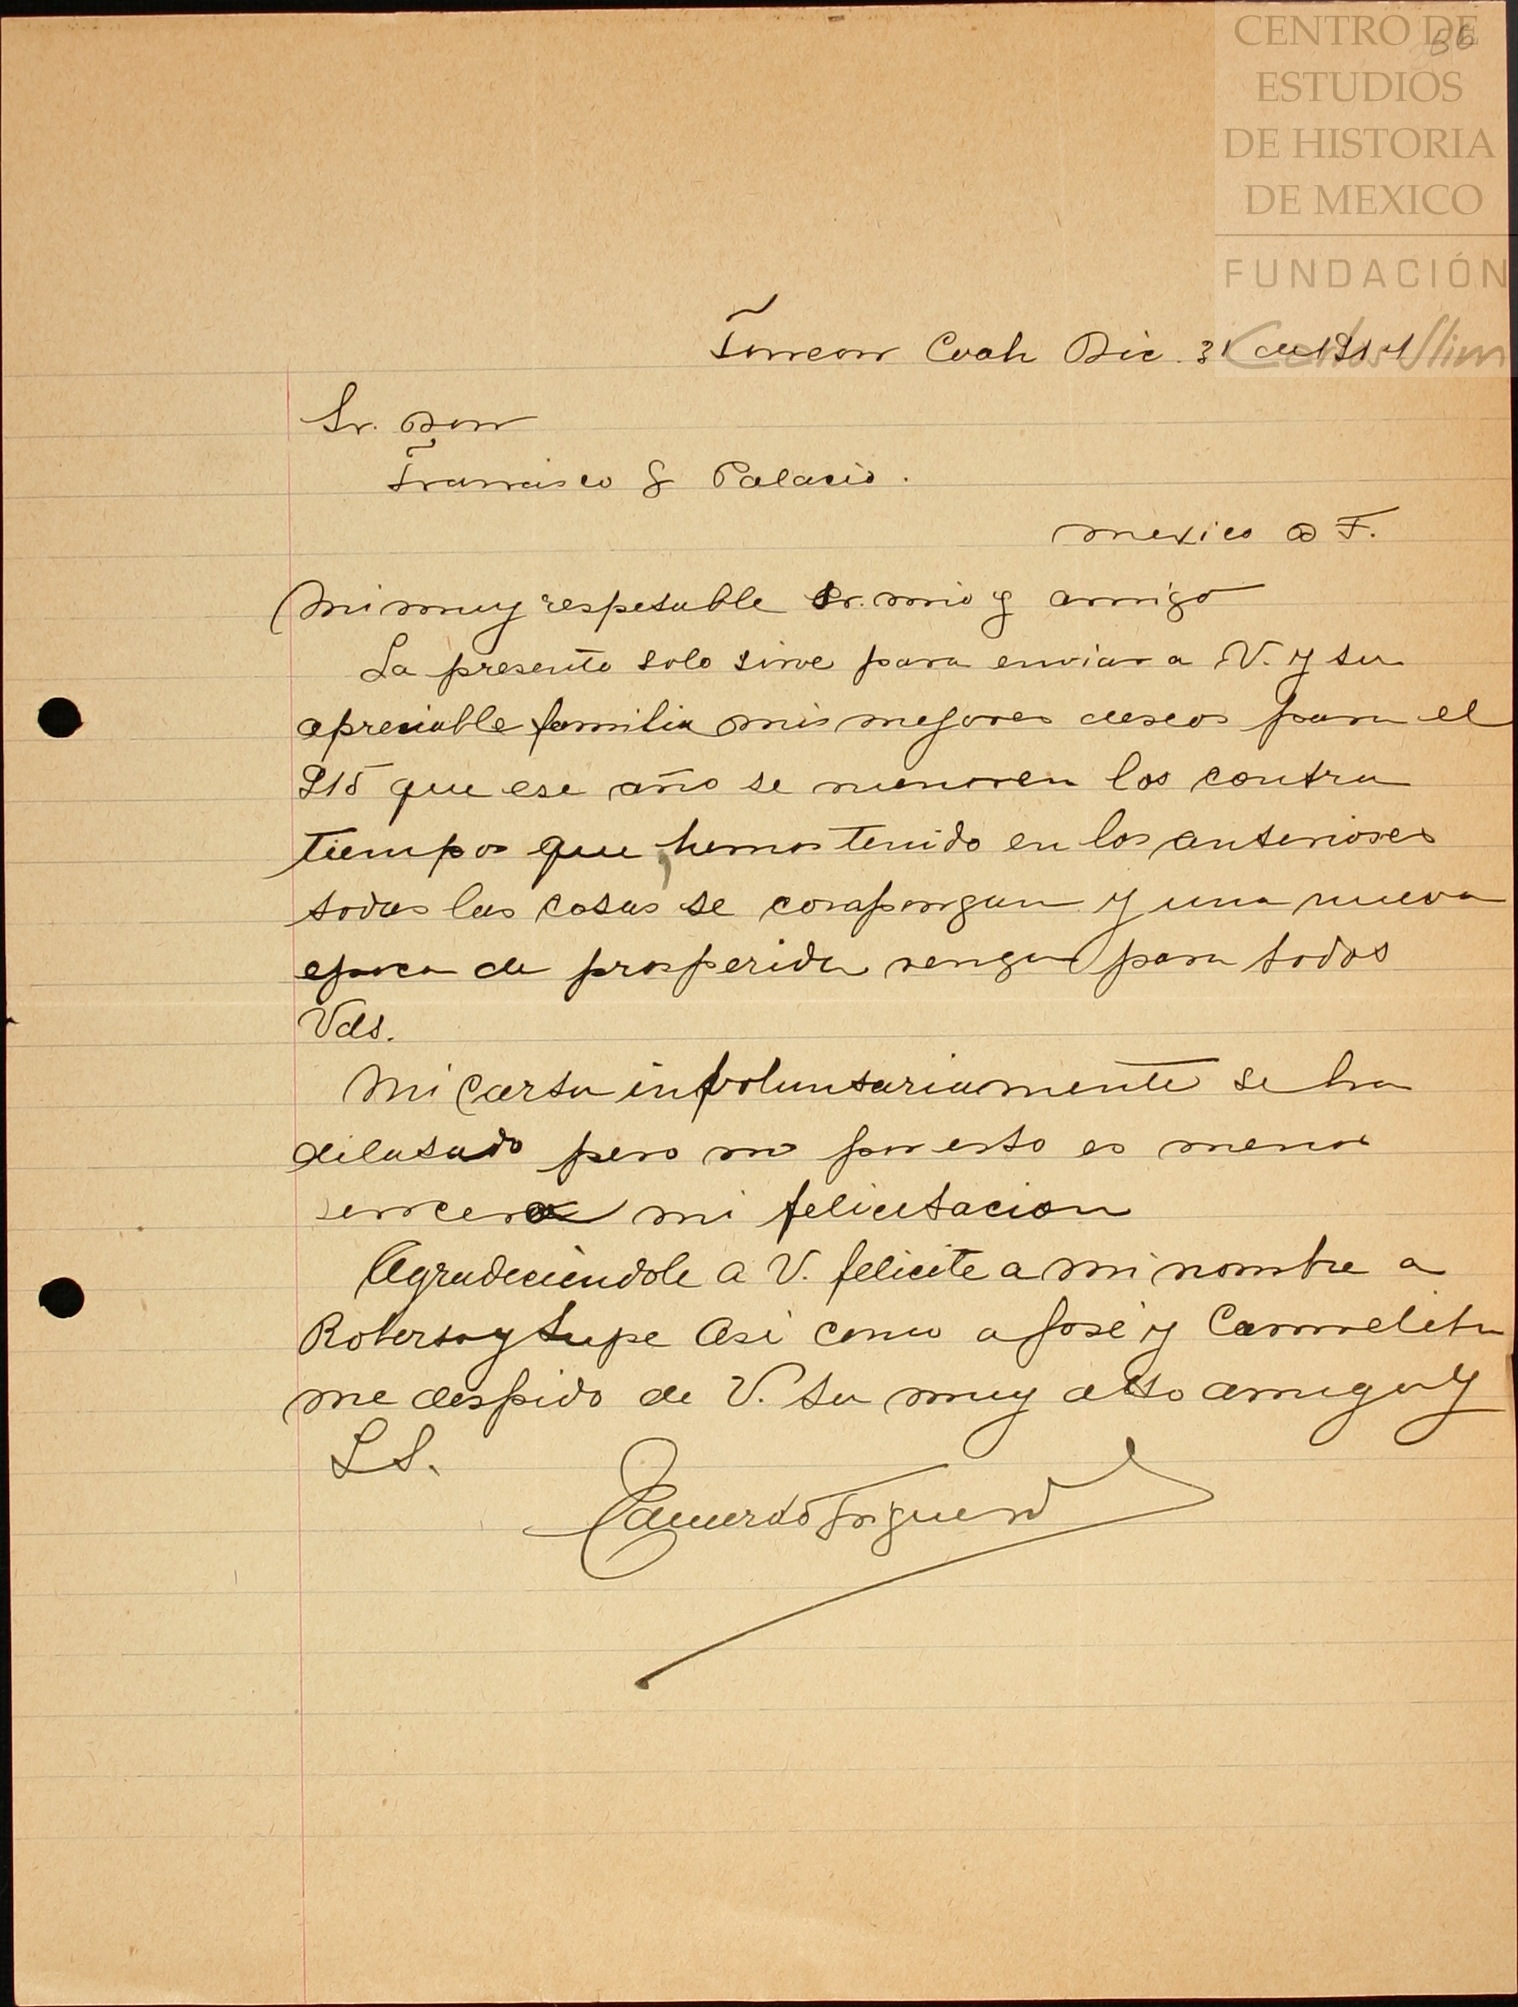 CENTRO DE
ESTUDIOS
DE HISTORIA
DE MEXICO
FUNDACIÓN
Carlos Slim
56
Torreon Coah Dic. 31 de 1914
Sr. Don
Francisco G Palacio.
Mexico D F.
Mi muy respetable Sr. mio y amigo
La presente solo sirve para enviar a V. y su
apreciable familia mis mejores deseos para el
915 que ese año se menoren los contra
tiempos que, hemos tenido en los anteriores
todas las cosas se compongan y una nueva
epoca de prosperida venga para todos
Vds.
Mi carta involuntariamente se ha
dilatado pero no por esto es menos
sincera mi felicitacion
Agradeciendole a V. felicite a mi nombre a
Roberto y Lupe Asi como a José y Carmelita
me despido de V. su muy atto amigo y
S S.
Eduardo Triguero